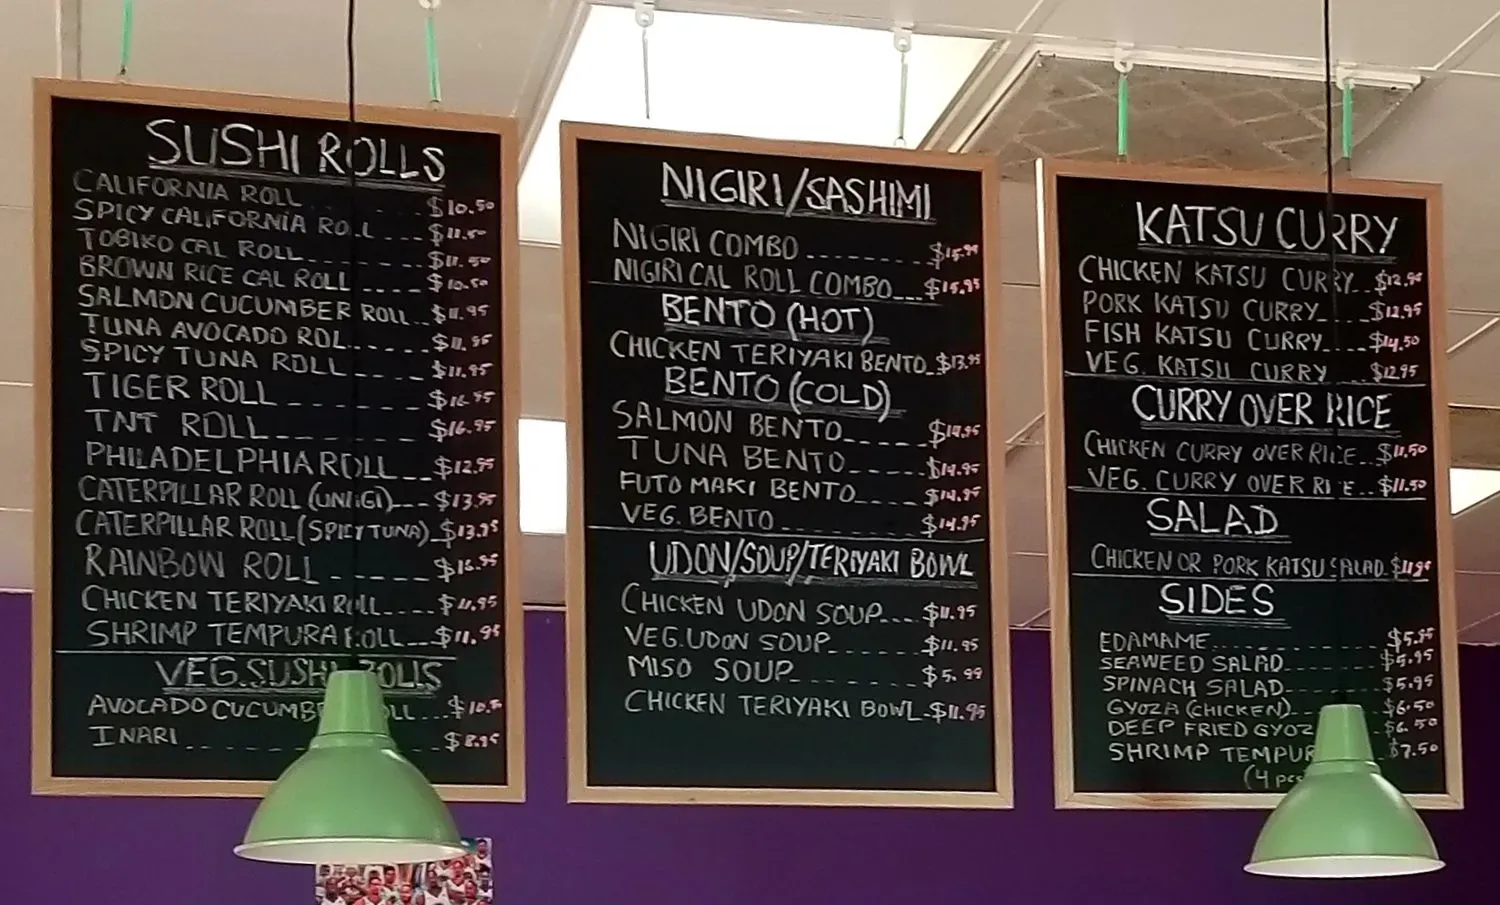 SUSHI ROLLS
CALIFORNIA ROLL $10.50
SPICY CALIFORNIA ROLL ---- $11.50
TOBIKO CAL ROLL ---- $11.50
BROWN RICE CAL ROLL ---- $10.50
SALMON CUCUMBER ROLL -- $11.95
TUNA AVOCADO ROL ---- $11.95
SPICY TUNA ROLL ---- $11.95
TIGER ROLL -------- $16.95
TNT ROLL -------- $16.95
PHILADELPHIA ROLL -- $12.95
CATERPILLAR ROLL (UNAGI) -- $13.95
CATERPILLAR ROLL (SPICY TUNA) - $13.95
RAINBOW ROLL ------ $16.95
CHICKEN TERIYAKI ROLL ---- $11.95
SHRIMP TEMPURA ROLL -- $11.95
VEG. SUSHI ROLLS
AVOCADO CUCUMB ROLL --- $10.50
INARI -------- $8.95
NIGIRI/SASHIMI
NIGIRI COMBO -------- $15.95
NIGIRI CAL ROLL COMBO --- $15.95
BENTO (HOT)
CHICKEN TERIYAKI BENTO - $13.95
BENTO (COLD)
SALMON BENTO ------ $14.95
TUNA BENTO ------ $14.95
FUTO MAKI BENTO ---- $14.95
VEG. BENTO -------- $14.95
UDON/SOUP/TERIYAKI BOWL
CHICKEN UDON SOUP --- $11.95
VEG. UDON SOUP ------ $11.95
MISO SOUP -------- $5.99
CHICKEN TERIYAKI BOWL - $11.95
KATSU CURRY
CHICKEN KATSU CURRY -- $12.95
PORK KATSU CURRY ---- $12.95
FISH KATSU CURRY ---- $14.50
VEG. KATSU CURRY --- $12.95
CURRY OVER RICE
CHICKEN CURRY OVER RICE -- $11.50
VEG. CURRY OVER RICE -- $11.50
SALAD
CHICKEN OR PORK KATSU SALAD - $11.95
SIDES
EDAMAME -------- $5.95
SEAWEED SALAD ------ $5.95
SPINACH SALAD ------ $5.95
GYOZA (CHICKEN) $6.50
DEEP FRIED GYOZ $6.50
SHRIMP TEMPUR $7.50
(4 pcs